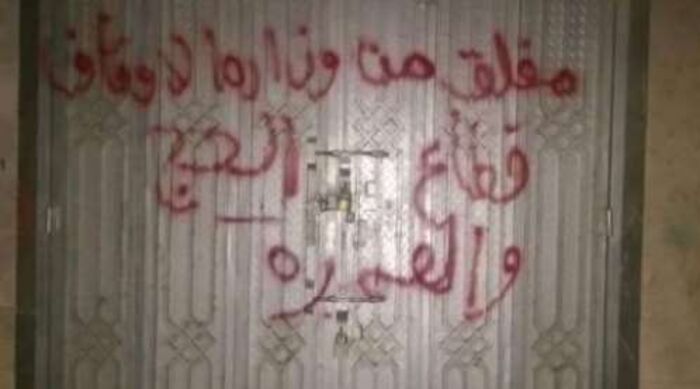 مغلق من وزاره الاوقاف
قطاع الحج
والعمره